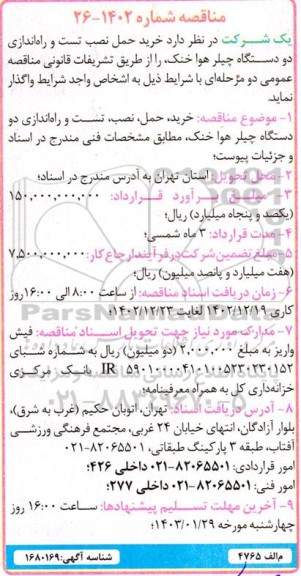 مناقصه شماره ۱۴۰۲-۲۶
یک شرکت در نظر دارد خرید حمل نصب تست و راه‌اندازی
دو دستگاه چیلر هوا خنک، را از طریق تشریفات قانونی مناقصه
عمومی دو مرحله‌ای با شرایط ذیل به اشخاص واجد شرایط واگذار
نماید.
۱- موضوع مناقصه: خرید، حمل، نصب، تست و راه‌اندازی دو
دستگاه چیلر هوا خنک، مطابق مشخصات فنی مندرج در اسناد
و جزئیات پیوست؛
۲- محل تحویل: استان تهران به آدرس مندرج در اسناد؛
۳- مبلغ برآورد قرارداد: ۱۵۰,۰۰۰,۰۰۰,۰۰۰
(یکصد و پنجاه میلیارد) ریال؛
۴- مدت قرارداد: ۳ ماه شمسی؛
۵- مبلغ تضمین شرکت در فرآیند ارجاع کار: ۷,۵۰۰,۰۰۰,۰۰۰
(هفت میلیارد و پانصد میلیون) ریال؛
۶- زمان دریافت اسناد مناقصه: از ساعت ۸:۰۰ الی ۱۶:۰۰ روز
کاری ۱۴۰۲/۱۲/۱۹ لغایت ۱۴۰۲/۱۲/۲۳؛
۷- مدارک مورد نیاز جهت تحویل اسناد مناقصه: فیش
واریز به مبلغ ۲,۰۰۰,۰۰۰ (دو میلیون) ریال به شماره شبای
IR بانک مرکزی
خزانه‌داری کل به همراه معرفینامه؛
۸- آدرس دریافت اسناد: تهران، اتوبان حکیم (غرب به شرق)،
بلوار آزادگان، انتهای خیابان ۲۴ غربی، مجتمع فرهنگی ورزشی
آفتاب، طبقه ۳ پارکینگ طبقاتی، ۸۲۰۶۵۵۰۱-۰۲۱
امور قراردادی: ۸۲۰۶۵۵۰۱-۰۲۱ داخلی ۴۲۶؛
امور فنی: ۸۲۰۶۵۵۰۱-۰۲۱ داخلی ۲۷۷؛
۹- آخرین مهلت تسلیم پیشنهادها: ساعت ۱۶:۰۰ روز
چهارشنبه مورخه ۱۴۰۳/۰۱/۲۹؛
م‌الف ۴۷۶۵
شناسه آگهی: ۱۶۸۰۱۶۹